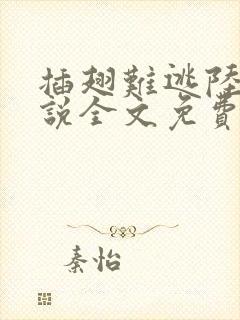 插翅難逃陸
說全文免費
秦怡